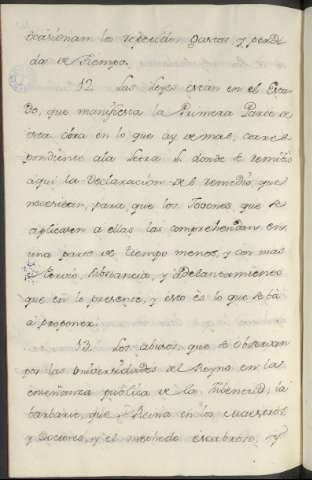 ocasionan la repetición gastos, y perdi
da de Tiempo.
12. Las Leyes estan en el Esta
do, que manifiesta la Primera Parte de
esta obra en lo que ay de mal, corres
pondiente ala Letra donde se remite
aqui la declaración del remedio, que
necesitan, para que los Jovenes, que se
aplicaren a ellas las comprehendan en
una parte de tiempo menos, y con mas
substancia, y adelantamiento
que en lo presente, y esto es lo que se bá
á proponer.
13. Los abusos, que se observan
por las Universidades del Reyno en las
enseñanza publica de la Jubentud, la
barbarie, que Reina en los Maestros
y Doctores, y el methodo escabroso, y